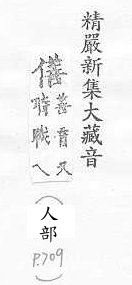 精嚴新集大藏音
僐
善音又
時戰乀
(人部 P.709)